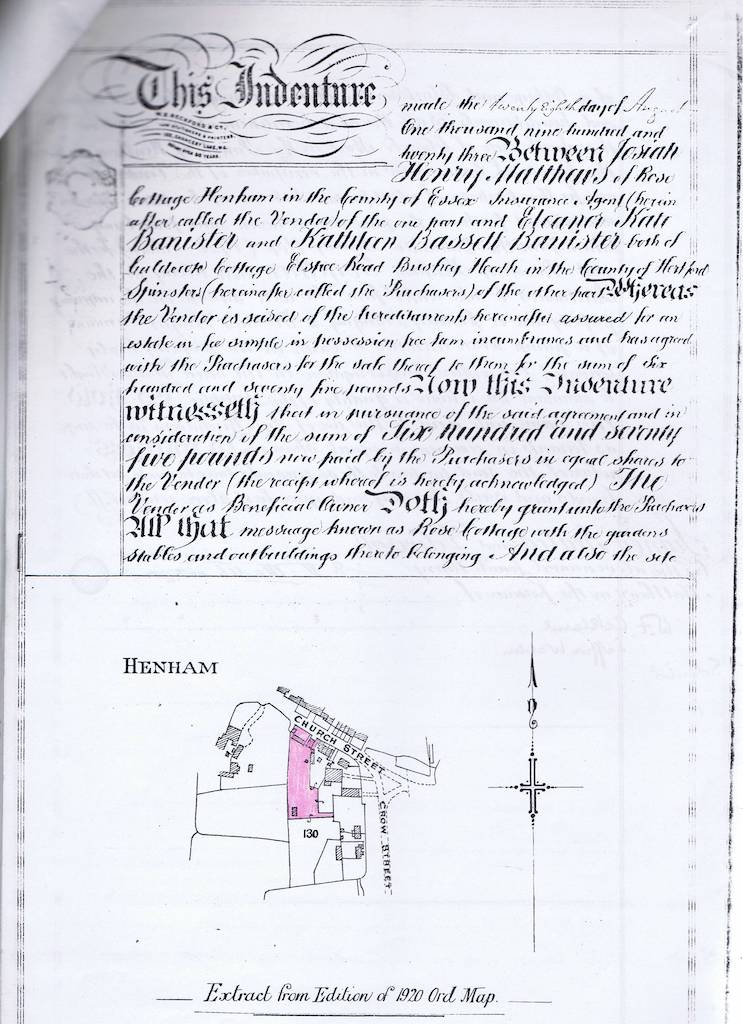 This Indenture
made the twenty eighth day of August
One thousand nine hundred and
twenty three Between Josiah
Henry Matthews of Rose
Cottage Henham in the County of Essex Insurance Agent (herein
after called the Vendor) of the one part and Eleanor Kate
Banister and Kathleen Bassett Banister both of
Caldecote Cottage Elstree Road Bushey Heath in the County of Hertford
Spinsters (hereinafter called the Purchasers) of the other part Whereas
the Vendor is seised of the hereditaments hereinafter assured for an
estate in fee simple in possession free from incumbrances and has agreed
with the Purchasers for the sale thereof to them for the sum of Six
hundred and seventy five pounds Now this Indenture
witnesseth that in pursuance of the said agreement and in
consideration of the sum of Six hundred and seventy
five pounds now paid by the Purchasers in equal shares to
the Vendor (the receipt whereof is hereby acknowledged) The
Vendor as Beneficial Owner Doth hereby grant unto the Purchasers
All that messuage known as Rose Cottage with the gardens
stables and outbuildings thereto belonging And also the
HENHAM
CHURCH STREET
CROW STREET
130
Extract from Edition of 1920 Ord Map.